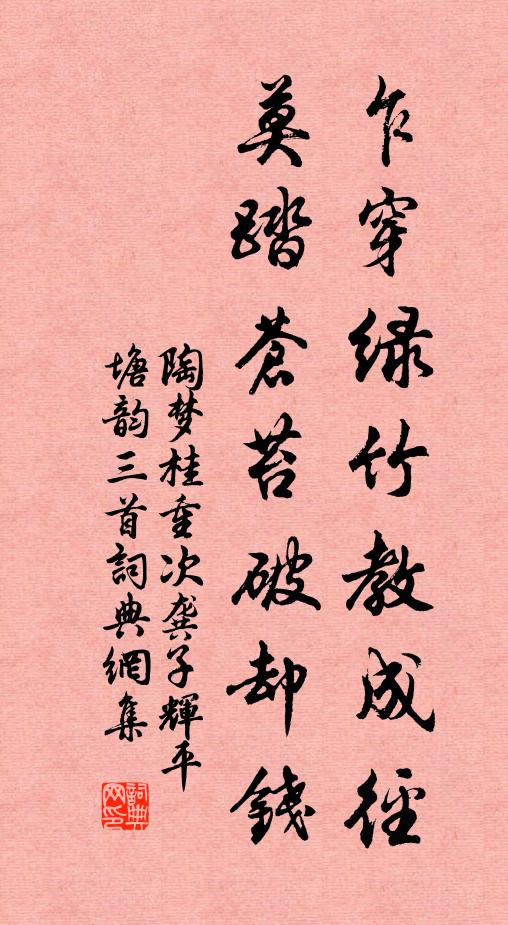 乍穿綠竹教成徑
莫踏蒼苔破却錢
陶梦桂重次龚子輝平
塘韵三首詞典網集
詞典网印